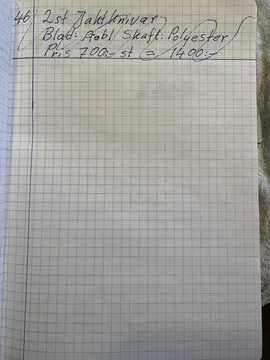 46 2st Jaktknivar
Blad: Skaft: Polyester
Pris 700:- st = 1400:-